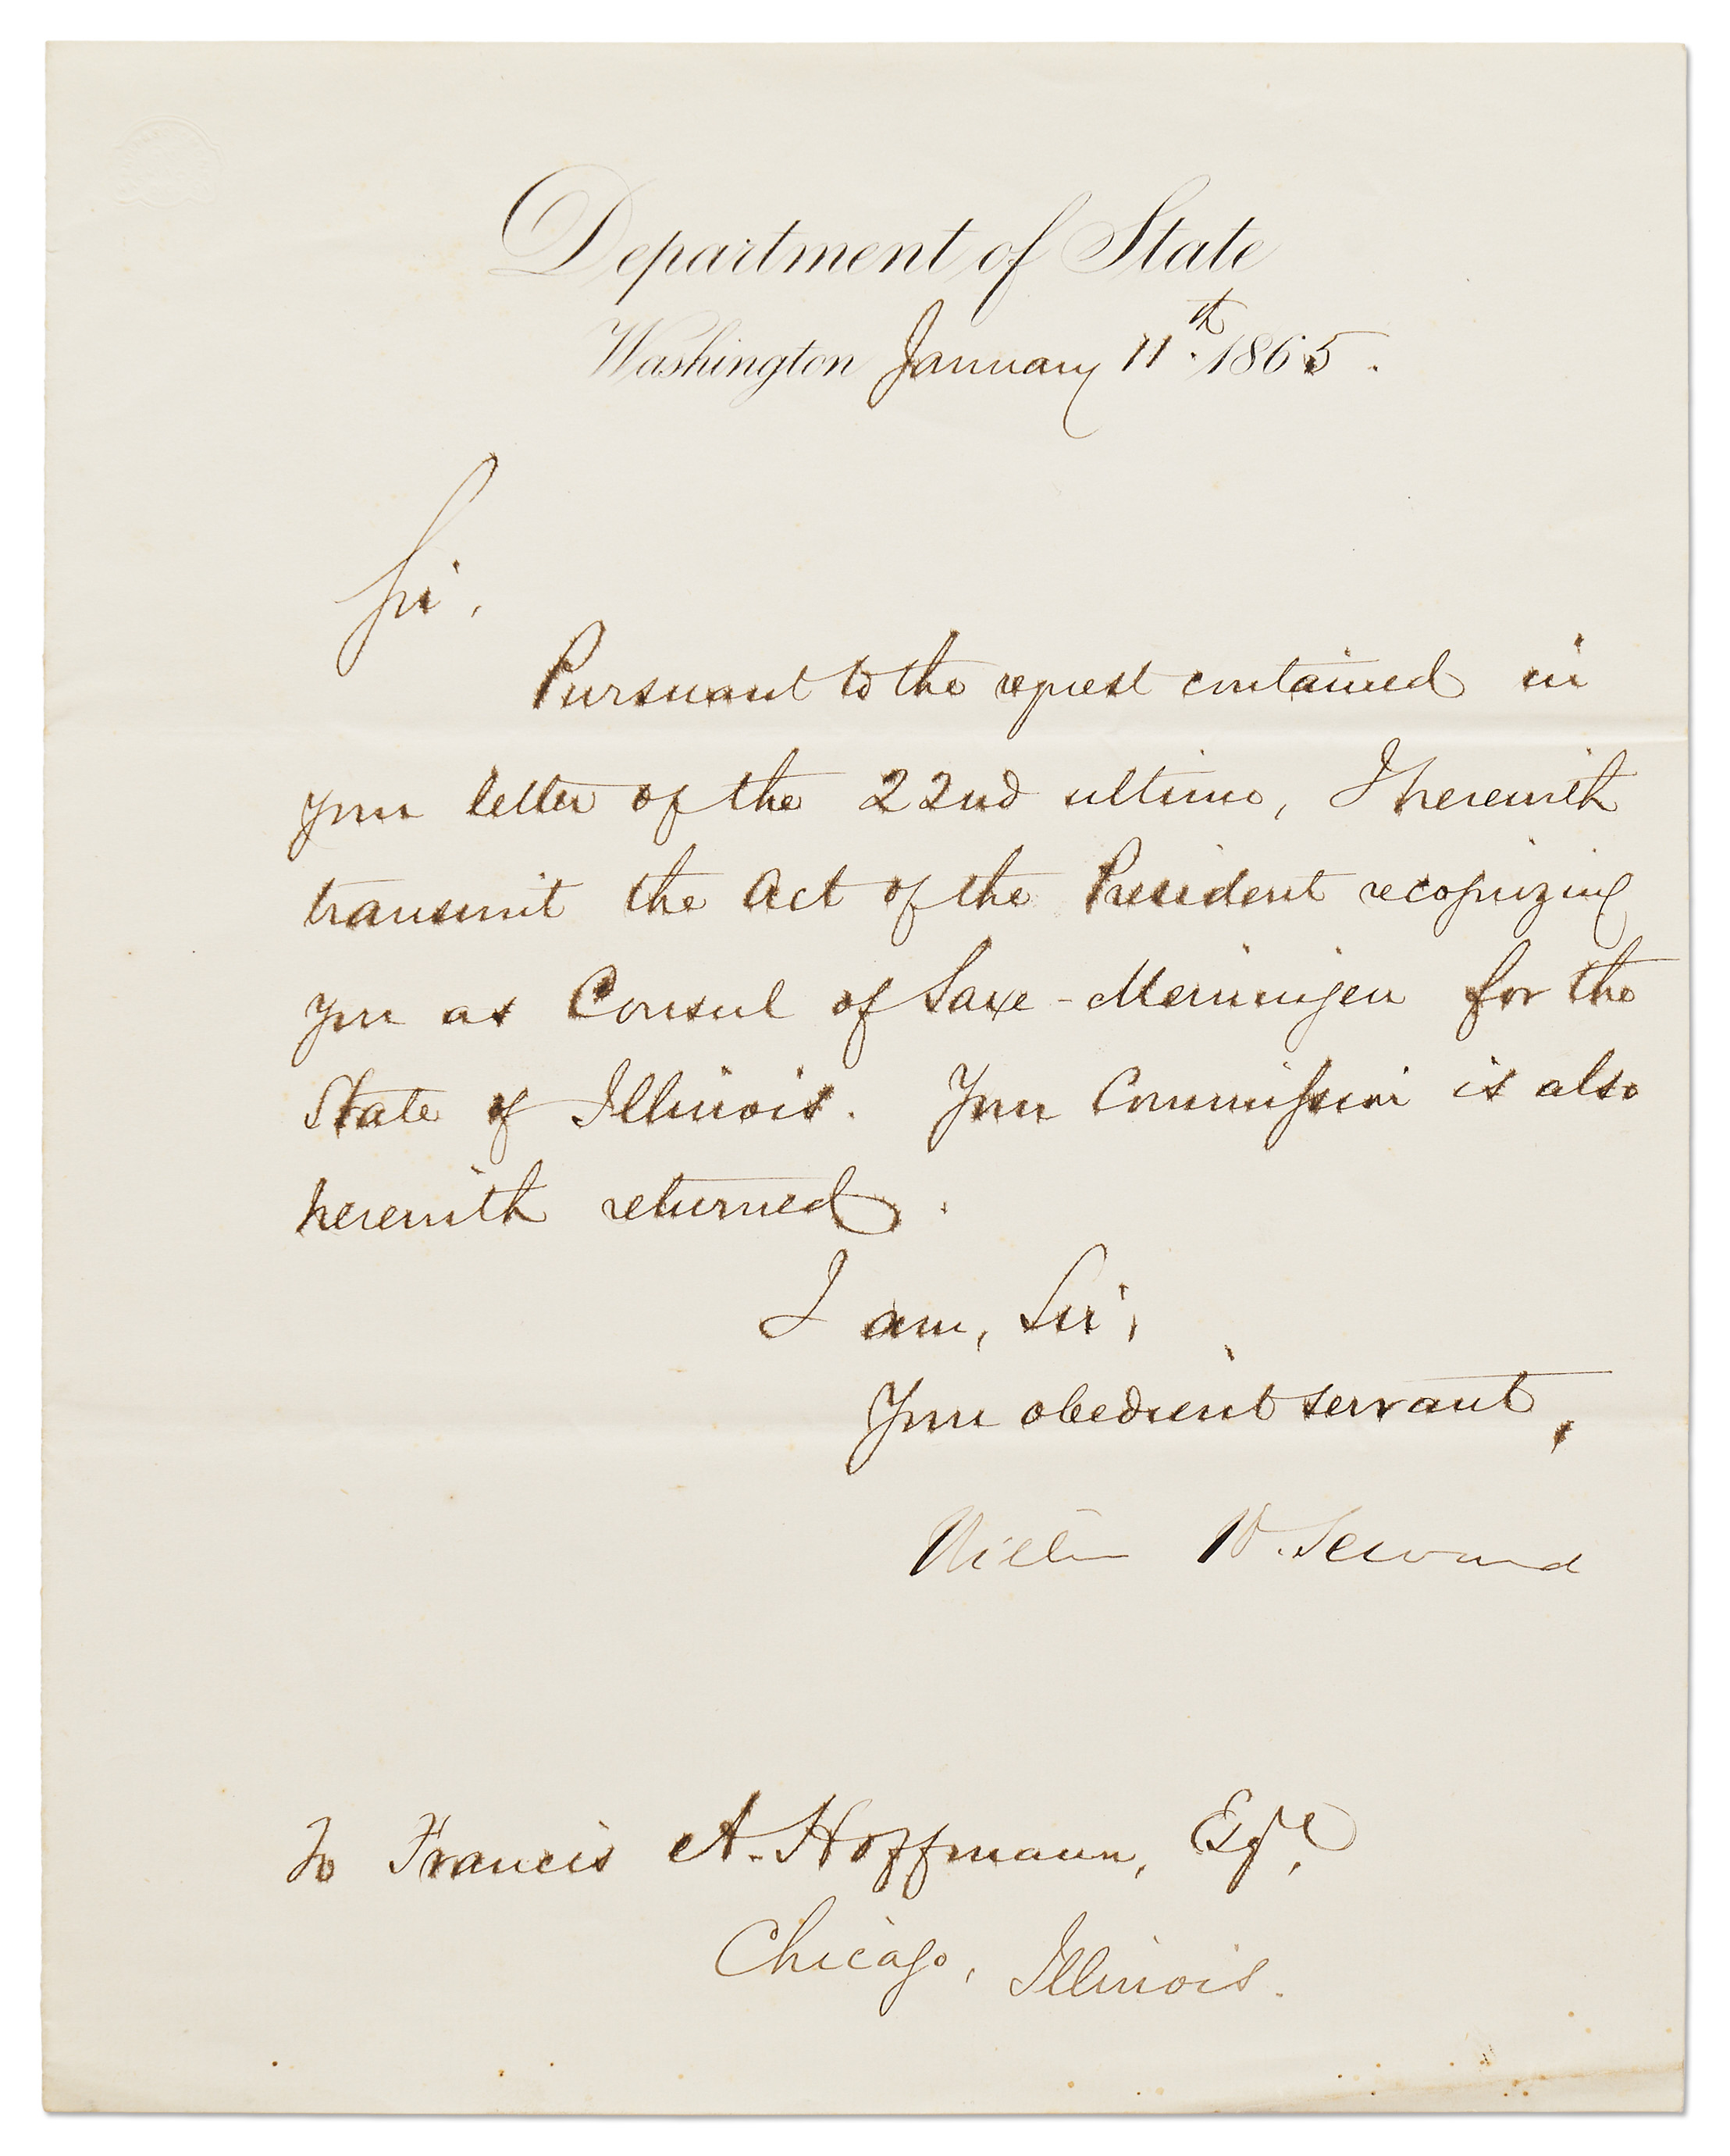 Department of State
Washington January 11th. 1865.
Sir,
Pursuant to the request contained in
your letter of the 22nd ultimo, I herewith
transmit the Act of the President recognizing
you as Consul of Saxe-Meiningen for the
State of Illinois. Your Commission is also
herewith returned.
I am, Sir,
Your obedient servant,
William H. Seward
To Francis A. Hoffmann, Esqre,
Chicago, Illinois.